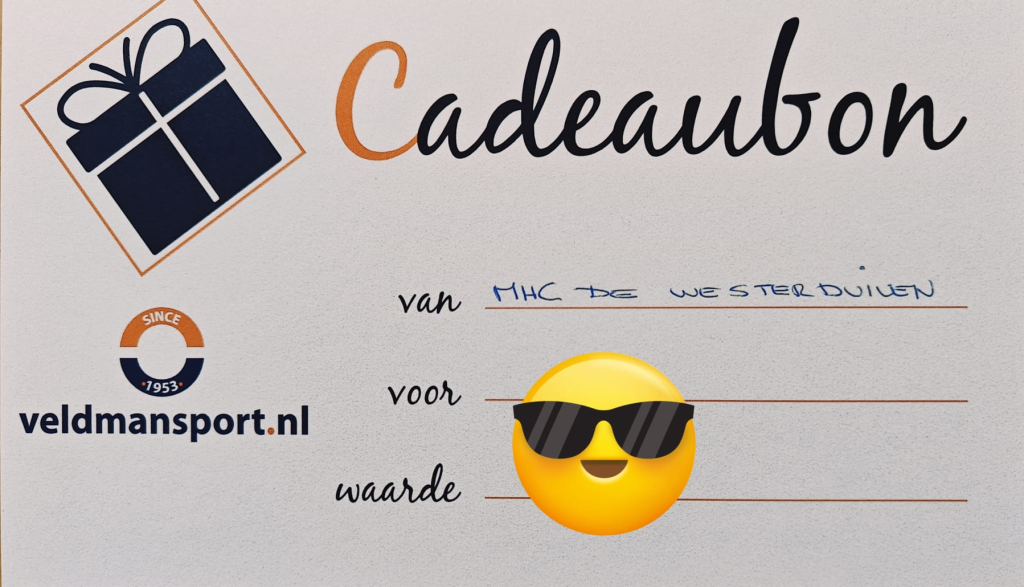 Cadeaubon
van MHC DE WESTERDUINEN
SINCE
1953
veldmansport.nl
voor
waarde